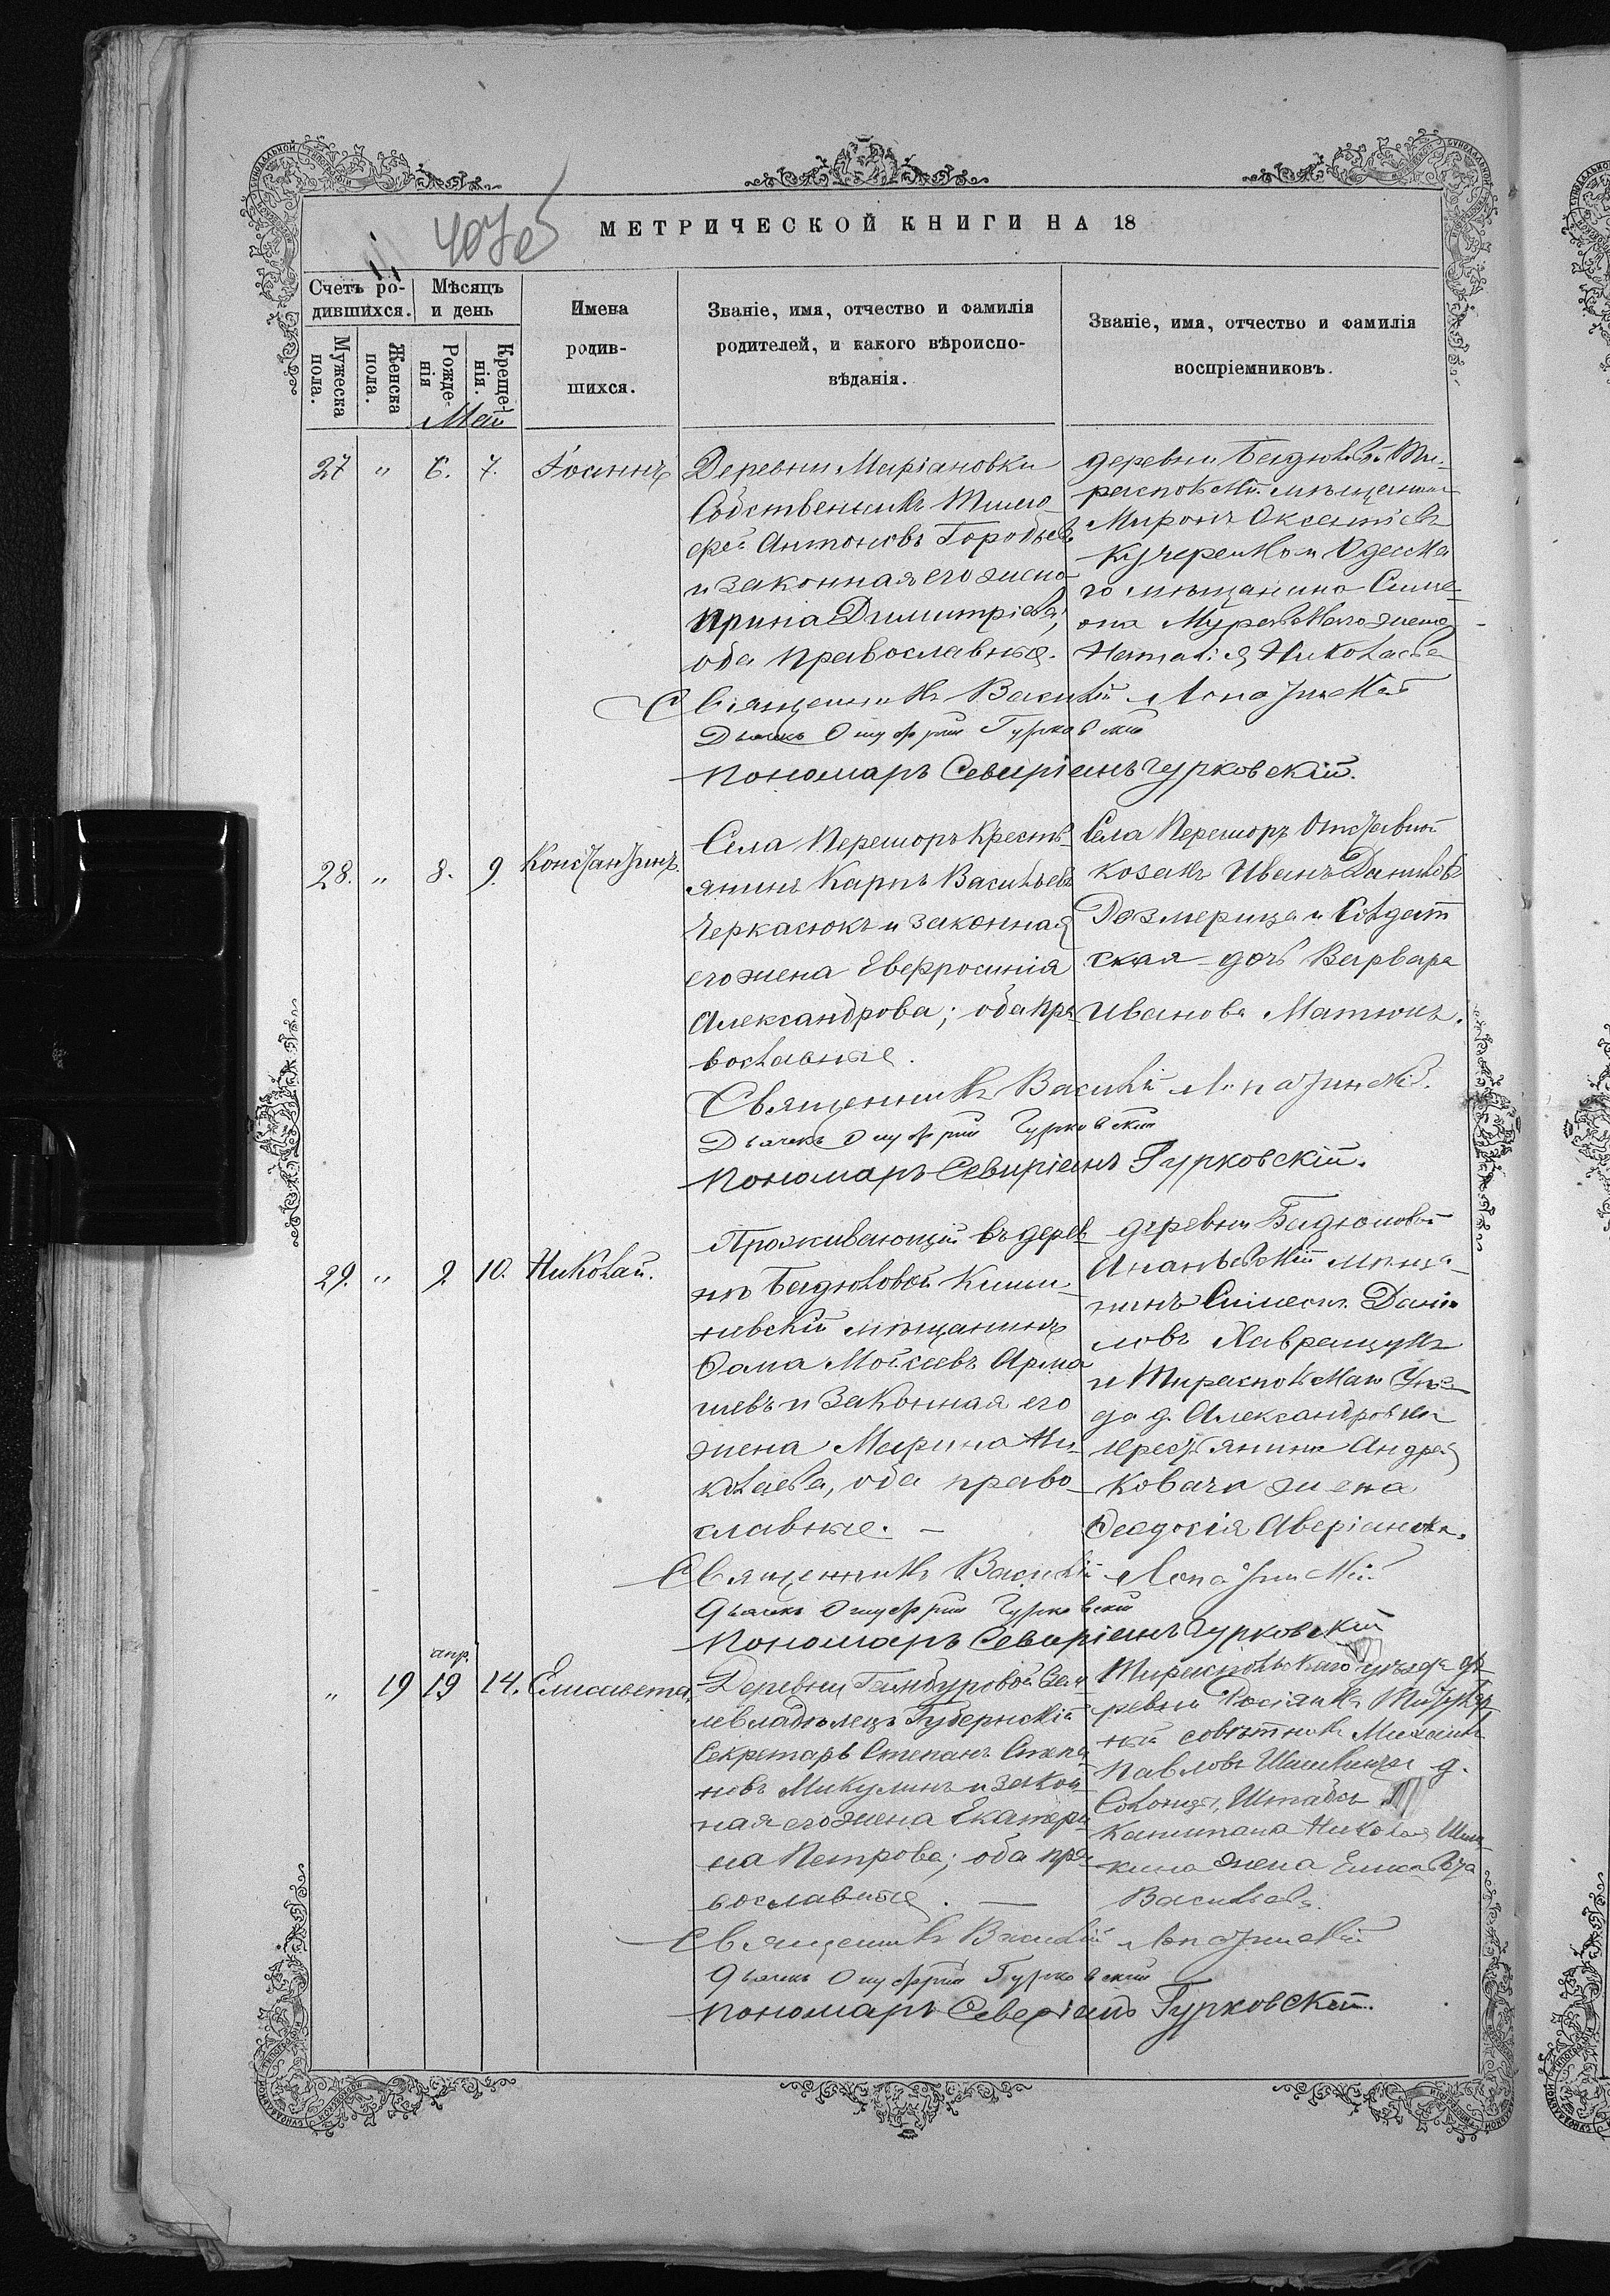 407 об
МЕТРИЧЕСКОЙ КНИГИ НА 18
Счетъ ро-
дившихся.
Мѣсяцъ
и день
Имена
родив-
шихся.
Званіе, имя, отчество и фамилія
родителей, и какого вѣроиспо-
вѣданія.
Званіе, имя, отчество и фамилія
воспріемниковъ.
Мужеска
пола.
Женска
пола.
Рожде-
нія
Креще-
нія.
Май
27 " 6. 7. Іоаннъ
Деревни Маріановки
Собственникъ Тимо-
фей Антоновъ
и законная его жена
Ирина Димитріева;
оба православные.
деревни Бадюловой Ти-
распольскій мѣщанинъ
Миронъ Оксентіевъ
Кучеренко и Одесска
го мѣщанина Симе-
она жена
Наталія Николаева
Священникъ Василій Лопатинскій
Дьячекъ Онуфрій Гурковскій
Пономарь Северіанъ Гурковскій.
28. " 8. 9. Константинъ.
Села Перешоръ Кресть-
янинъ Карпъ Васильевъ
Черкасюкъ и законная
его жена Евфросинія
Александрова; оба пра-
вославные.
Села Перешоръ Отставной
козакъ Иванъ Даниловъ
Дозмерица и Солдат
ская дочь Варвара
Иванова Матюкъ.
Священникъ Василій Лопатинскій.
Дьячекъ Онуфрій Гурковскій
Пономарь Северіанъ Гурковскій.
29. " 9 10. Николай.
Проживающій въ дерев-
нѣ Бадюловой Киши-
невскій мѣщанинъ
Фома Моисеевъ Арма
шевъ и законная его
жена Марина Ни-
колаева, оба право-
славные. —
деревни Бадюловой
Ананьевскій мѣща-
нинъ Симеонъ Дани
ловъ
и Тираспольскаго Уѣз-
да д. Александровки
крестьянина Андрея
Ковача жена
Феодосія Аверіанова.
Священникъ Василій Лопатинскій
Дьячекъ Онуфрій Гурковскій
Пономарь Северіанъ Гурковскій
апр.
" 19 19 14. Елисавета,
Деревни Гамбуровой Зем
левладѣлецъ Губернскій
Секретарь Степанъ Степа
новъ Микулинъ и закон
ная его жена Екатери
на Петрова; оба пра
вославные. —
Тираспольскаго уѣзда де
ревни Росіянки Титуляр
ный совѣтникъ Михаилъ
Павловъ д.
Штабсъ
Капитана Николая
жена Елисавета
Васильева.
Священникъ Василій Лопатинскій
Дьячекъ Онуфрій Гурковскій
Пономарь Северіанъ Гурковскій.